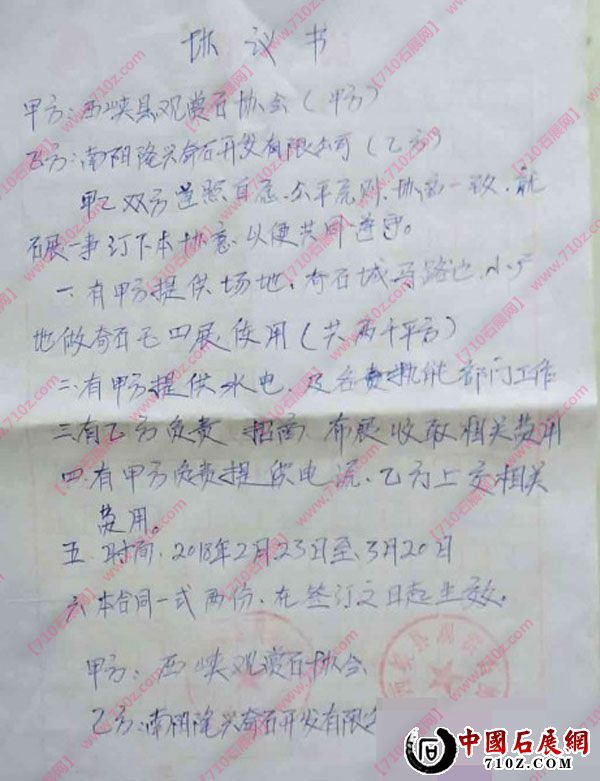 协议书
甲方:西峡县观赏石协会(甲方)
乙方:南阳隆兴奇石开发有限公司(乙方)
甲乙双方遵照自愿、公平原则,协商一致,就
石展一事订下本协意,以便共同遵守。
一、有甲方提供场地,奇石城马路边、小广
地做奇石毛四展使用(共两千平方)
二、有甲方提供水电,及各责执能部门工作
三、有乙方负责招商、布展收取相关费用
四、有甲方负责提供电流、乙方上交相关
费用。
五、时间,2018年2月23日至3月20日
六、本合同一式两份,在签订之日起生效。
甲方:西峡观赏石协会
乙方:南阳隆兴奇石开发有限
【710石展网】
www.710z.com
中國石展網
710Z.COM